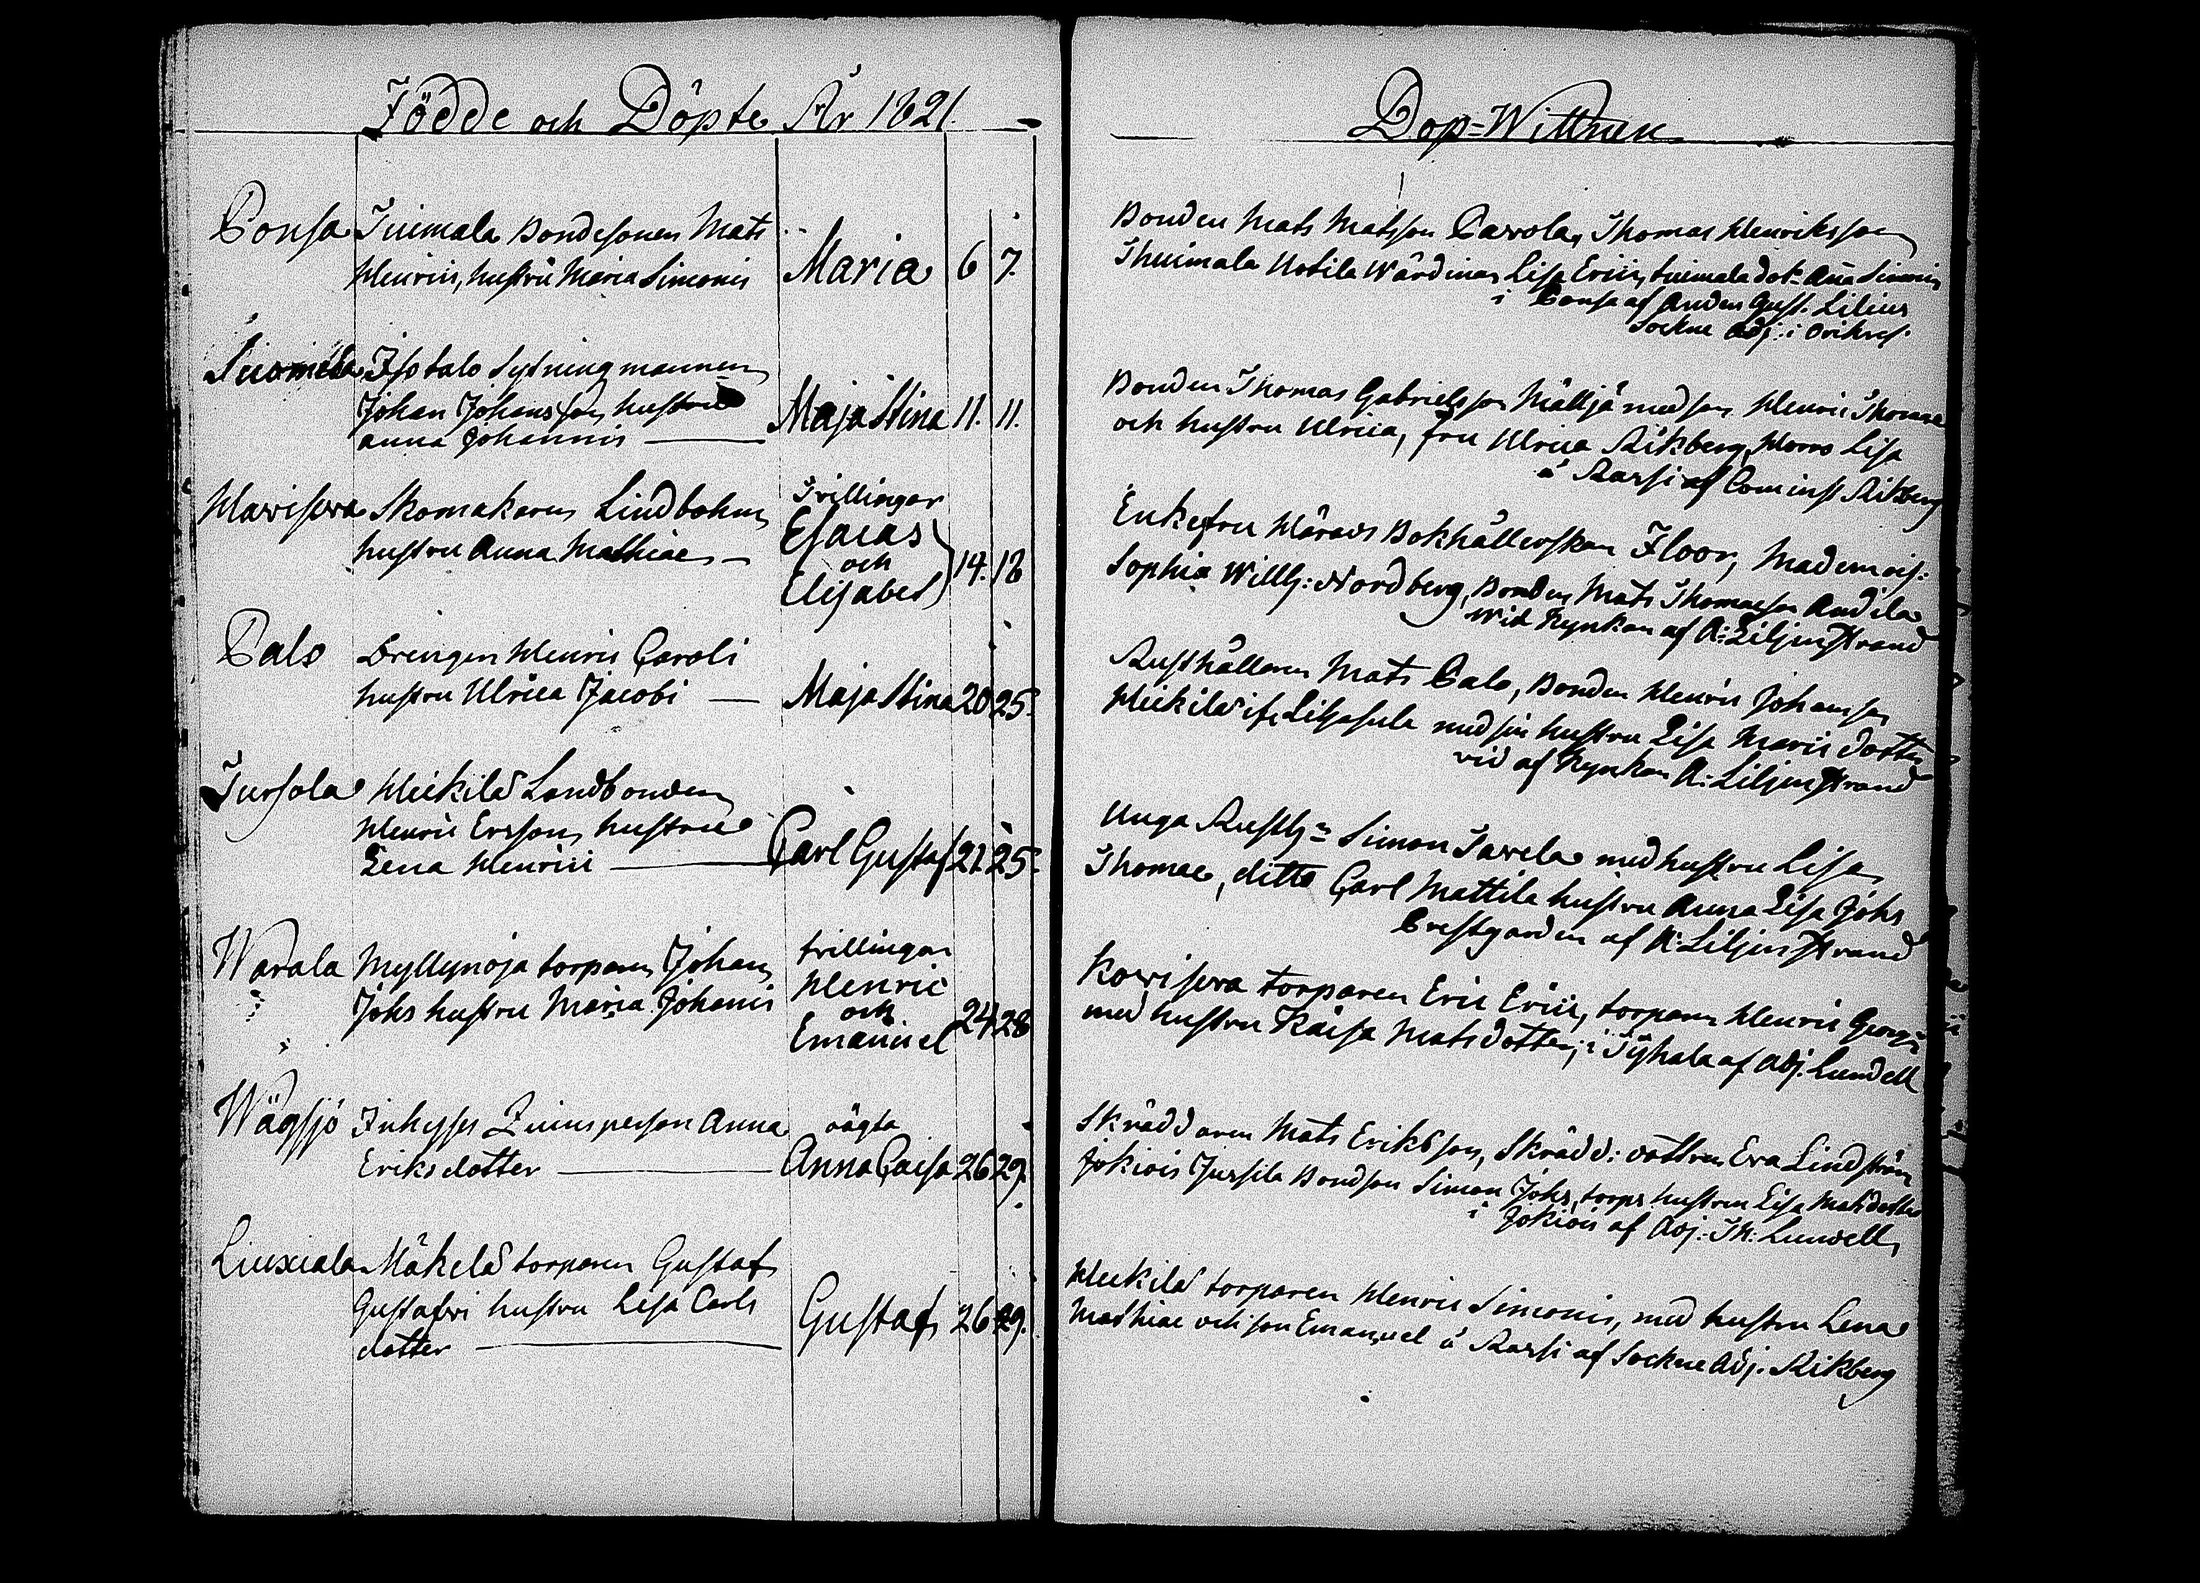 Födde och Döpte År 1821.
Ponsa Tuimala Bondesonen Mats
Henrici, hustru Maria Simonis
Maria 6 7.
Suomela Isotalo Sysningmannen
Johan Johansson hustru
Anna Johannis
Maja Stina 11. 11.
Haviseva Skomakaren Lindbohm
hustru Anna Mathiae
Tvillingar
Esaias
och
Elisabet 14. 18
Palo Drengen Henric Caroli
hustru Ulrica Jacobi
Maja Stina 20 25.
Tursola Heikilä Landbonden
Henric Ersson, hustru
Lena Henrici
Carl Gustaf 21. 25.
Warala Myllynoja torparen Johan
Johs hustru Maria Johanis
tvillingar
Henric
och
Emanuel 24. 28
Wägsjö Inhyses Qvinsperson Anna
Eriksdotter
oägta
Anna Caisa 26 29.
Liuxiala Mäkelä torparen Gustaf
Gustafvi hustru Lisa Carls
dotter
Gustaf 26 29.
Dop-Wittnen
Bonden Mats Matsson Pavola, Thomas Henriksson
Thuimala Uotila Wärdinan Lisa Erici, tuimala dot. Aña Simonis
i Ponsa af Anders Gust. Lilius
Sockne Adj: i Orihvesi
Bonden Thomas Gabrielsson Mälljä med son Henric Thomae
och hustru Ulrica, fru Ulrica Aikberg, Lisa
å Karsi af Cominist Aikberg
Enkefru Bokhållerskan Floor, Mademois:
Sophia Willh: Nordberg, Bonden Mats Thomasson Andila
wid Kyrkan af A: Liljenstrand
Rusthållaren Mats Palo, Bonden Henric Johansson
Heikilä if. med sin hustru Lisa dotter
vid af Kyrkan A: Liljenstrand
Unga Rusth:n Simon Tavela med hustru Lisa
Thomae, ditto Carl Mattila hustru Anna Lisa Johs
Prestgården af A: Liljenstrand
torparen Eric Erici, torparen Henric Georgii
med hustru Kaisa Matsdotter, i Tyhala af Adj. Lundell
Skräddaren Mats Eriksson, Skrädd: dottren Eva Lindström
Jokiois Jussila Bondson Simon Johs, torps hustrun Lisa Matsdotter
i Jokiois af Adj: Th: Lundell
Heikilä torparen Henric Simonis, med hustru Lena
Mathiae och son Emanuel å Karsi af Sockne Adj. Aikberg